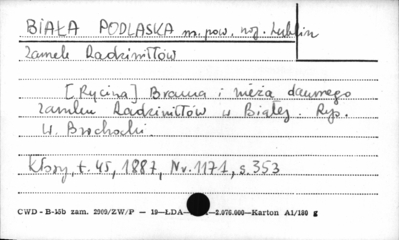 BIAŁA PODLASKA m. pow. woj. Lublin
Zamek Radziwiłłów
[Rycina] Brama i wieża dawnego
zamku Radziwiłłów w Białej. Rys.
W. Brochocki
Kłosy, t. 45, 1887, Nr. 1171, s. 353
CWD - B-15b zam. 2909/ZW/P — 19—ŁDA— —2.076.000—Karton A1/180 g